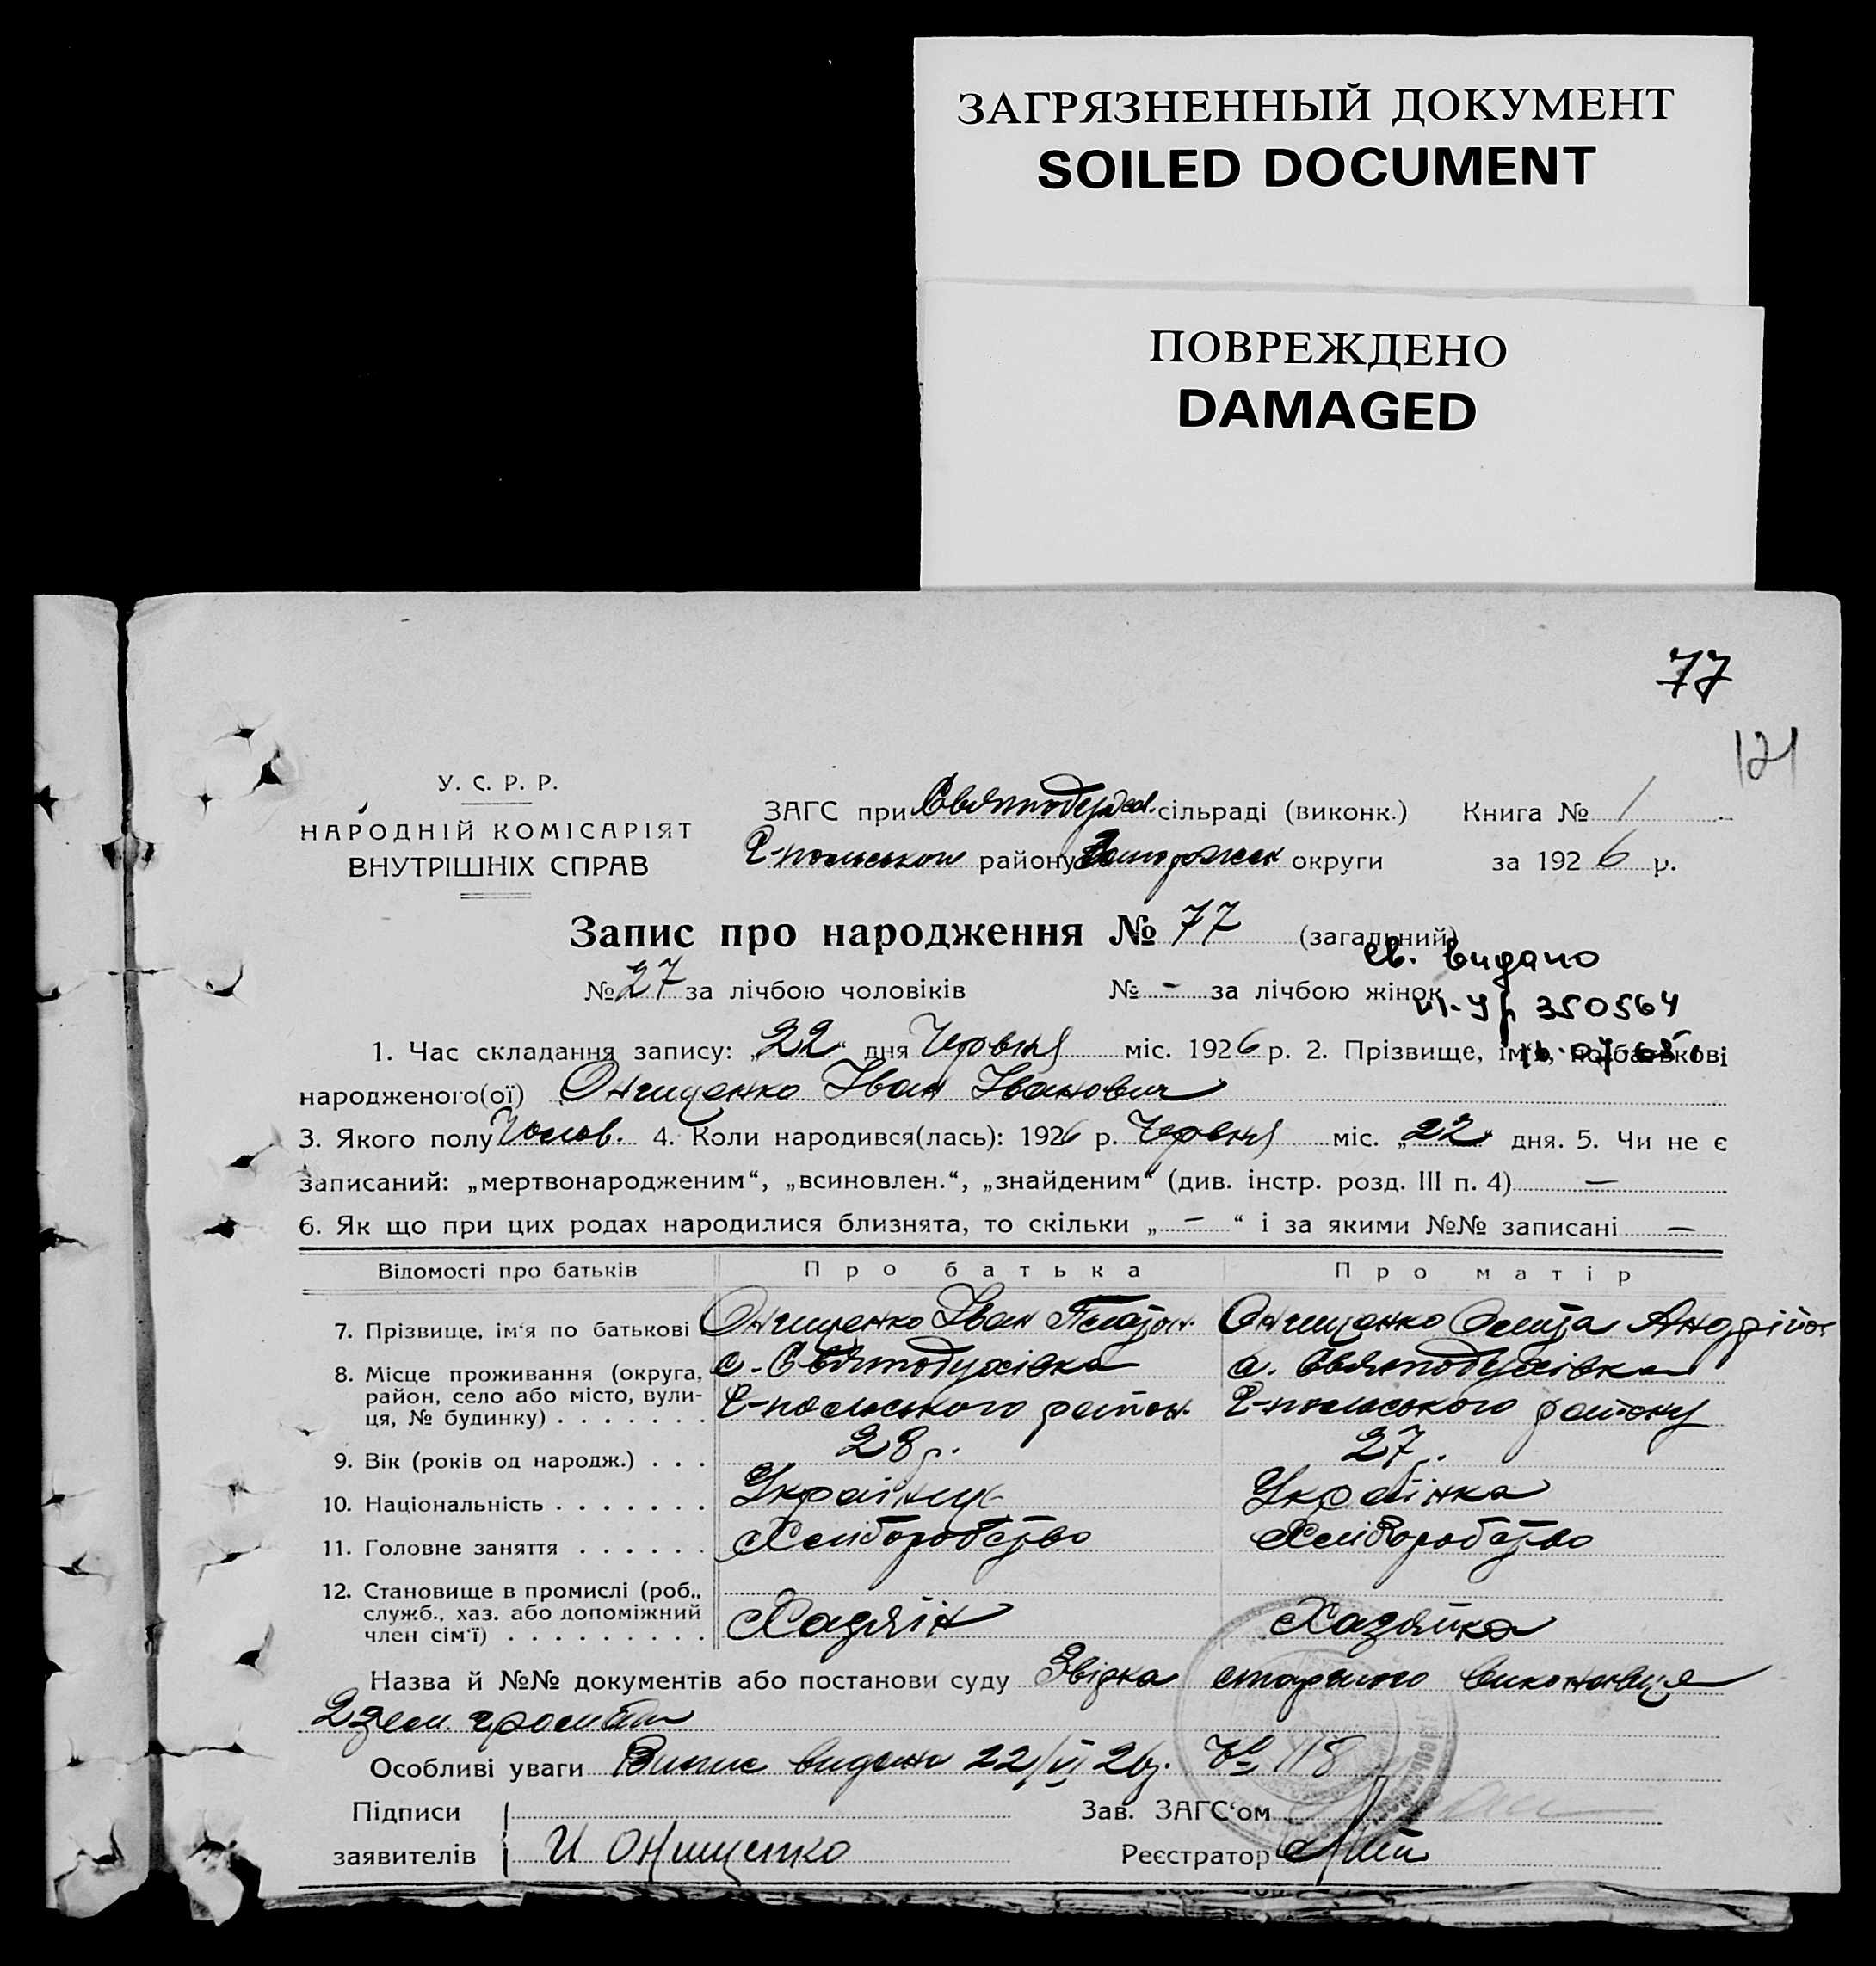 ЗАГРЯЗНЕННЫЙ ДОКУМЕНТ
SOILED DOCUMENT
ПОВРЕЖДЕНО
DAMAGED
77
121
У. С. Р. Р.
НАРОДНІЙ КОМІСАРІЯТ
ВНУТРІШНІХ СПРАВ
ЗАГС при Святодухів. сільраді (виконк.) Книга № 1
району Запоріжськ округи за 1926 р.
Запис про народження № 77 (загальний)
св. видано
№ 27 за лічбою чоловіків № - за лічбою жінок
350564
1. Час складання запису: „22“ дня Червня міс. 1926 р. 2. Прізвище, ім'я, по батькові
народженого(ої) Онищенко Іван Іванович
3. Якого полу Чолов. 4. Коли народився(лась): 1926 р. Червня міс. „22“ дня. 5. Чи не є
записаний: „мертвонародженим“, „всиновлен.“, „знайденим“ (див. інстр. розд. III п. 4) —
6. Як що при цих родах народилися близнята, то скільки „—“ і за якими №№ записані —
Відомості про батьків Про батька Про матір
7. Прізвище, ім'я по батькові Онищенко Іван Платон. Онищенко Андрійов
8. Місце проживання (округа, с. Святодухівка с. Святодухівка
район, село або місто, вули-
ця, № будинку) . . . . . . . район. району
9. Вік (років од народж.) . . . 28 р. 27 р.
10. Національність . . . . . . . Українец Українка
11. Головне заняття . . . . . . Хліборобство Хліборобство
12. Становище в промислі (роб.,
служб., хаз. або допоміжний
член сім'ї) . . . . . . . . . Хазяїн Хазяйка
Назва й №№ документів або постанови суду Звірка старшого виконавця
2 зем. громади
Особливі уваги Випис видано 22/VI 26 р. № 118
Підписи Зав. ЗАГС'ом
заявителів И Онищенко Реєстратор